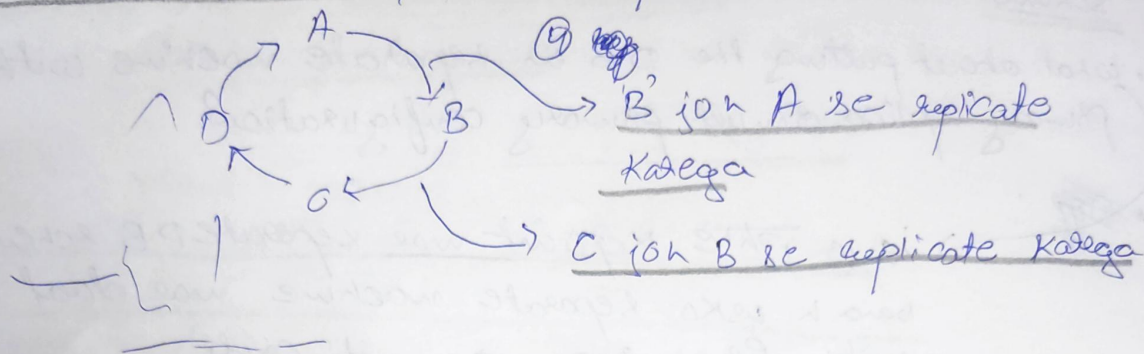 A
④
'B' jon A se replicate
D
B
Karega
C
C jon B se replicate Karega